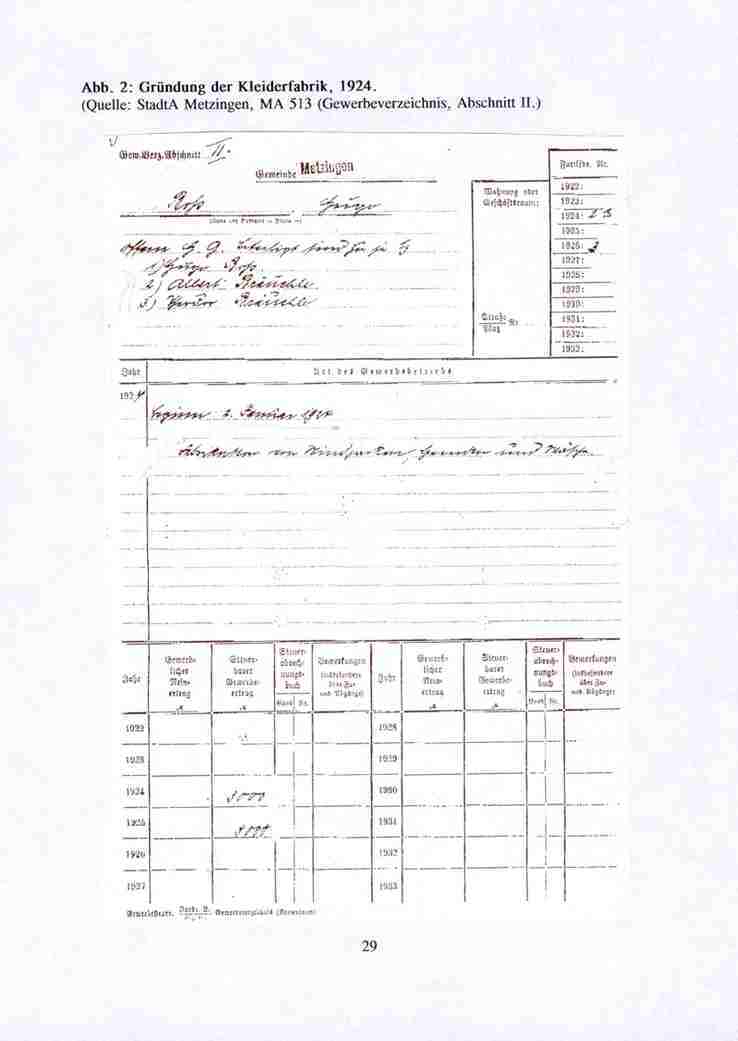 Abb. 2: Gründung der Kleiderfabrik, 1924.
(Quelle: StadtA Metzingen, MA 513 (Gewerbeverzeichnis, Abschnitt II.)
Gew.Verz.Abschnitt II.
Gemeinde Metzingen
Fortlfde. Nr.
Wohnung oder
Geschäftsraum:
1922:
1923:
1924: 23
1925:
1926: 2
1927:
1928:
1929:
1930:
1931:
1932:
1933:
Straße
Platz
Nr.
Boss, Hugo
offene H. G. beteiligt sind zu je 1/3
1) Hugo Boss
2) Albert Bräuchle
3) Theodor Bräuchle
Jahr
Art des Gewerbebetriebs
1924
Beginn 2. Januar 1924
Fabrikation von Windjacken, Hemden und Wäsche.
Jahr
Gewerb-
licher
Rein-
ertrag
Steuer-
barer
Gewerbe-
ertrag
Steuer-
abrech-
nungs-
buch
Band Nr.
Bemerkungen
(insbesondere
über Zu-
und Abgänge)
Jahr
Gewerb-
licher
Rein-
ertrag
Steuer-
barer
Gewerbe-
ertrag
Steuer-
abrech-
nungs-
buch
Band Nr.
Bemerkungen
(insbesondere
über Zu-
und Abgänge)
1922
1928
1923
1929
1924
1930
1925
1931
1926
1932
1927
1933
29